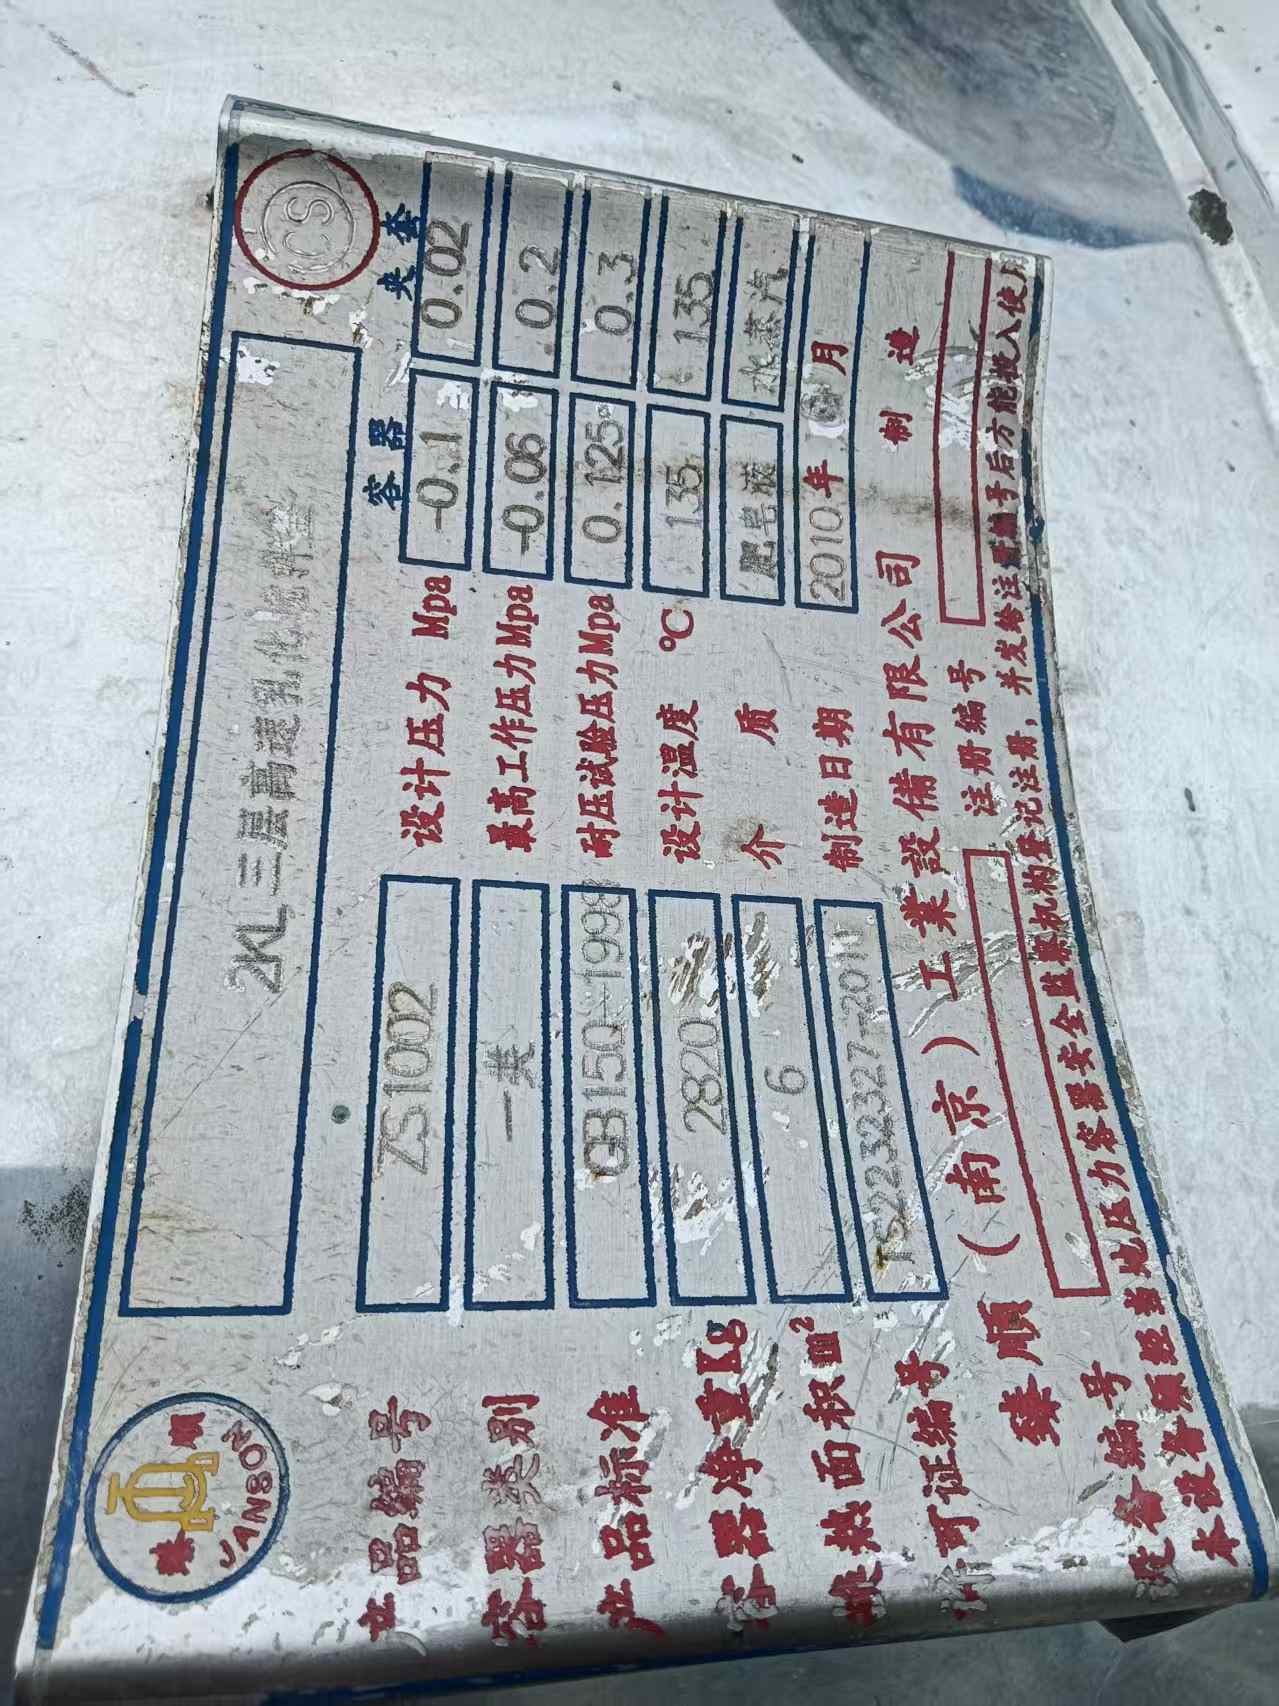 臻顺
JANSON
CS
2KL三层高速乳化搅拌釜
容器 夹套
产品编号 ZS1002 设计压力 Mpa -0.1 0.02
容器类别 一类 最高工作压力Mpa -0.06 0.2
产品标准 GB150-1998 耐压试验压力Mpa 0.125 0.3
容器净重Kg 2820 设计温度 ℃ 135 135
换热面积m² 6 介质 肥皂液 水蒸汽
许可证编号 TS2232327-2011 制造日期 2010年 6月
臻顺(南京)工業設備有限公司 制造
设备编号 注册编号
本设备须经当地压力容器安全监察机构登记注册,并发给注册编号后方能投入使用